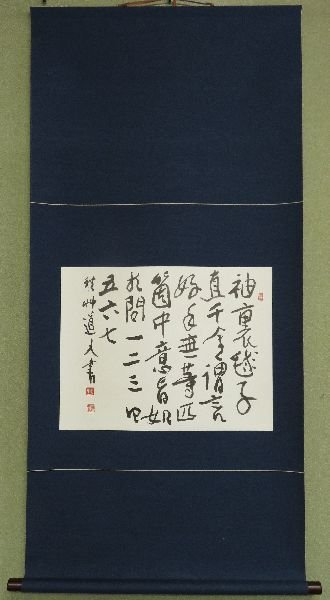 袖裏毬子
直千金謂言
好手無等匹
箇中意旨如
相問一二三四
五六七
道人書